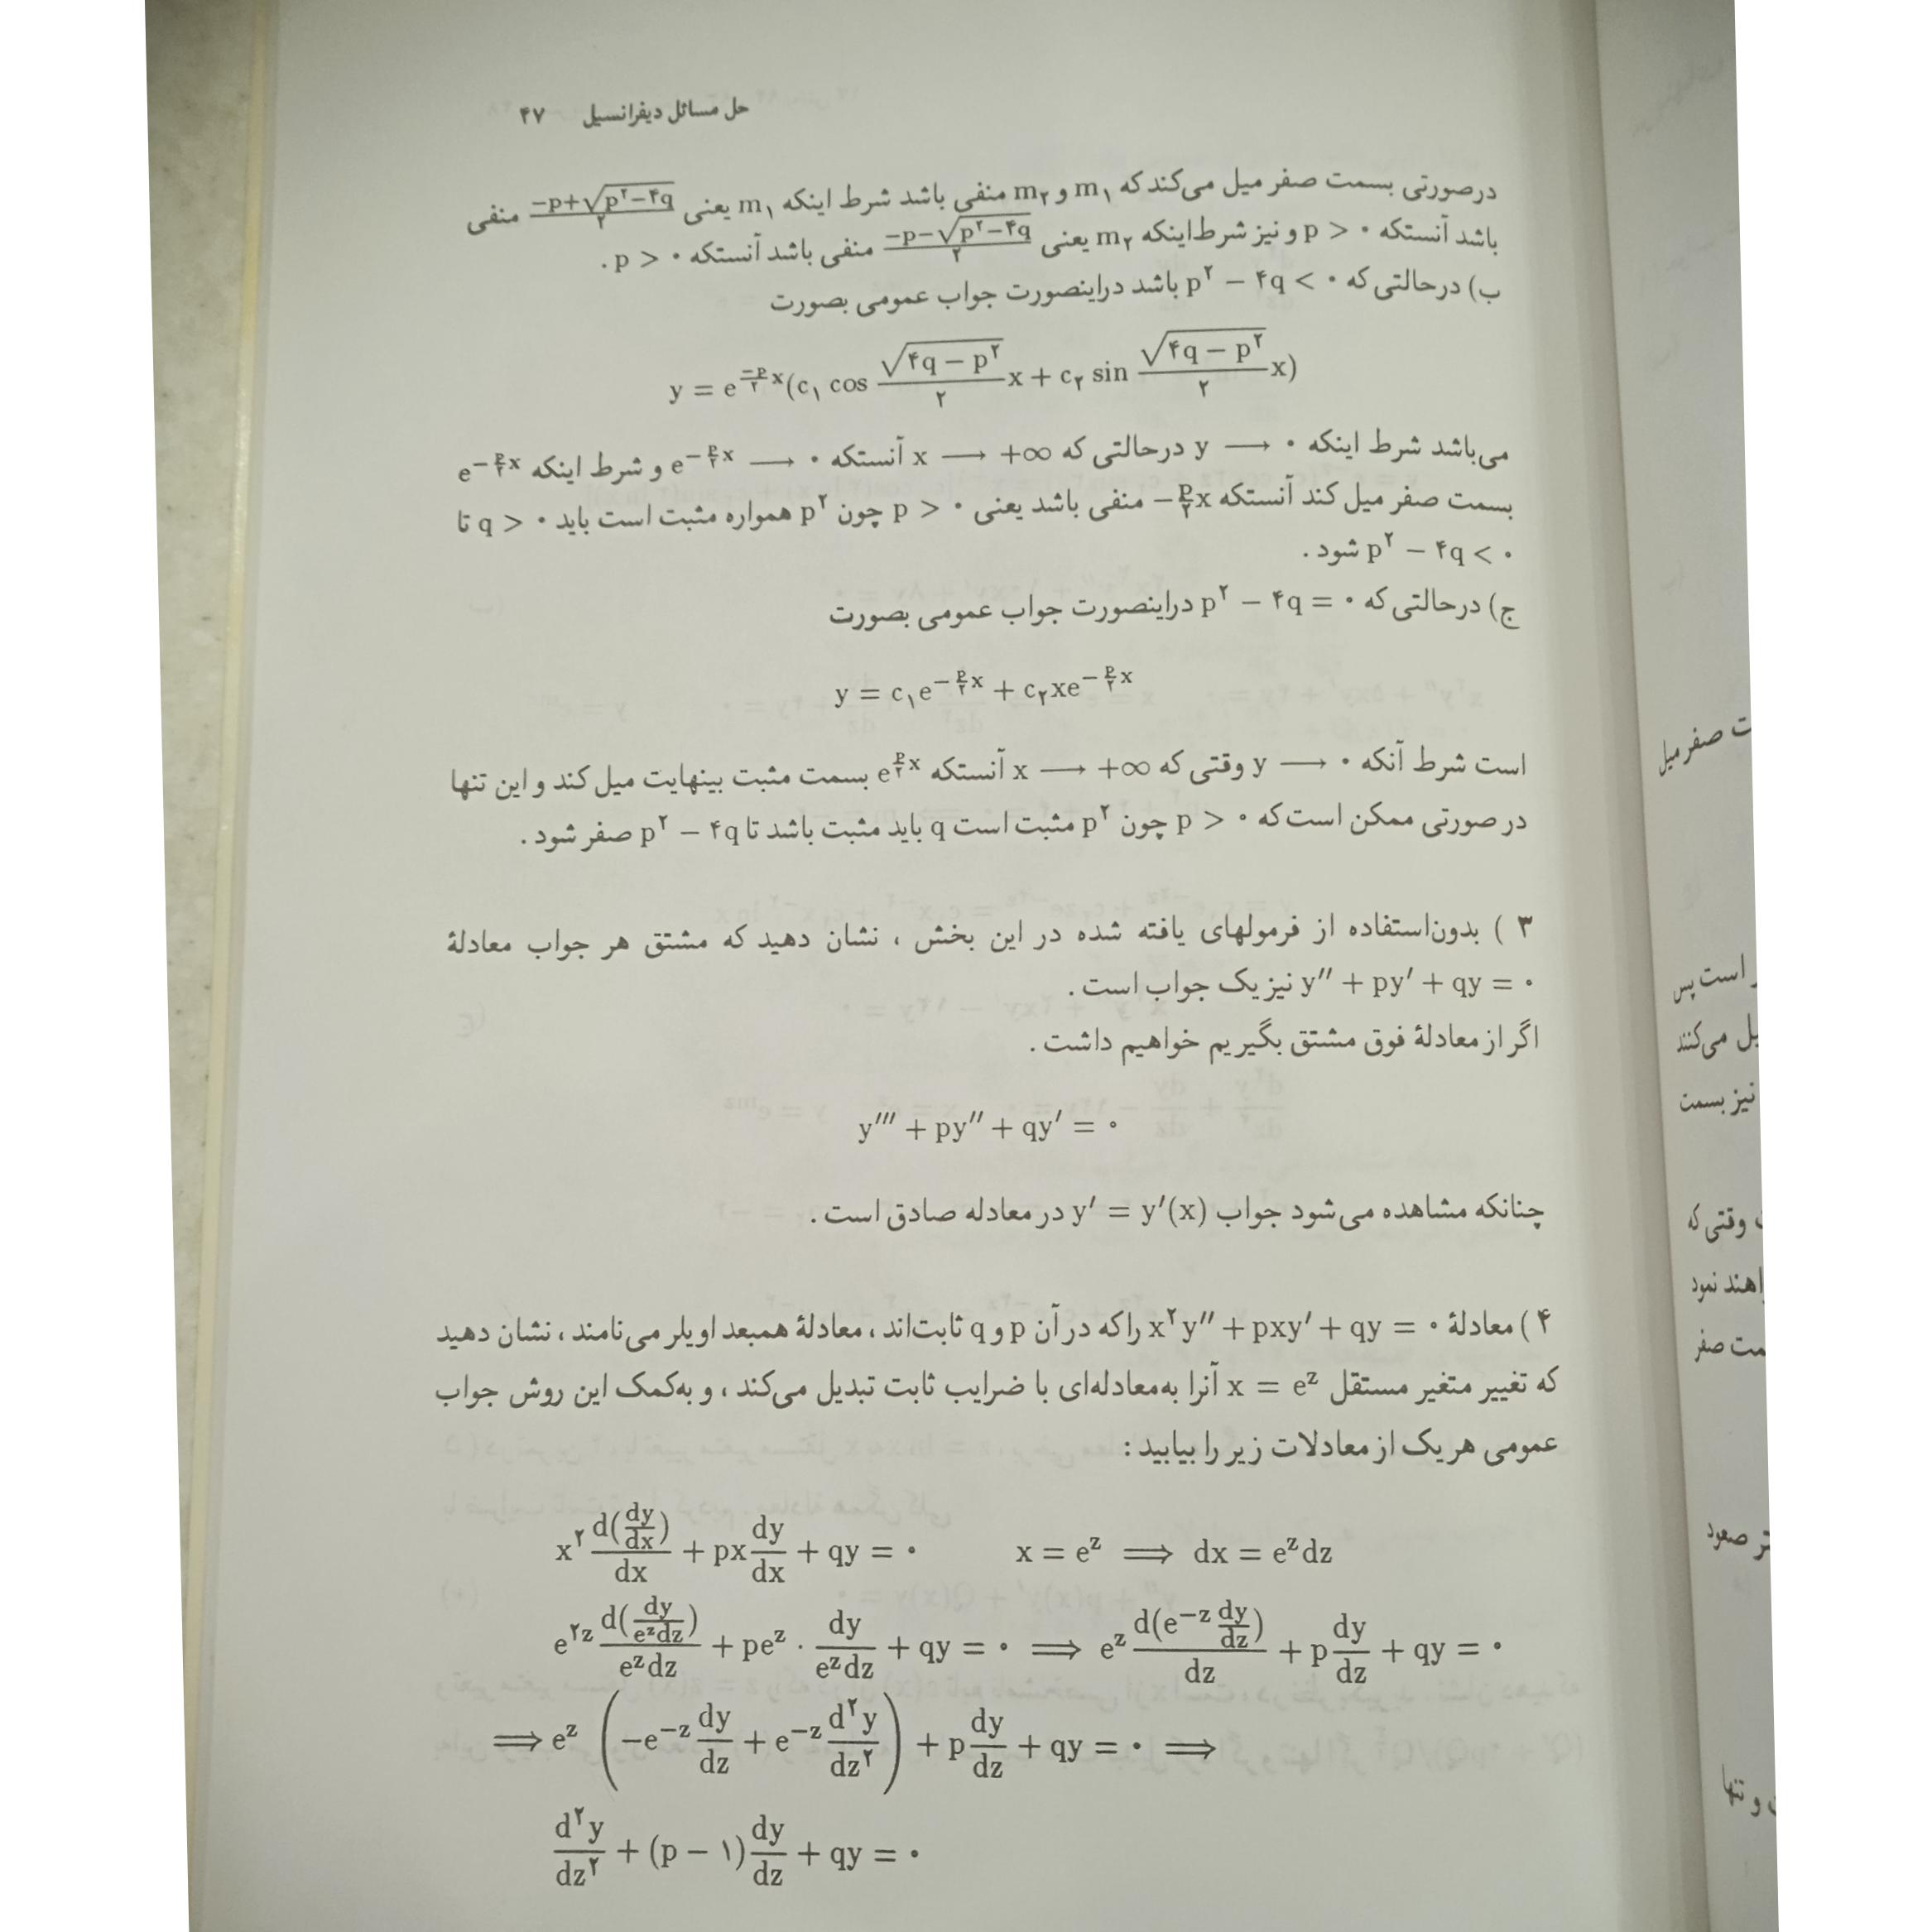 حل مسائل دیفرانسیل ۴۷
درصورتی بسمت صفر میل می‌کند که m۱ و m۲ منفی باشد شرط اینکه m۱ یعنی (-p+√(p۲-۴q))/۲ منفی
باشد آنستکه p > ۰ و نیز شرط اینکه m۲ یعنی (-p-√(p۲-۴q))/۲ منفی باشد آنستکه p > ۰ .
ب) درحالتی که p۲ - ۴q < ۰ باشد دراینصورت جواب عمومی بصورت
y = e^(-p/۲ x)(c۱ cos (√(۴q - p۲)/۲)x + c۲ sin (√(۴q - p۲)/۲)x)
می‌باشد شرط اینکه y ⟶ ۰ درحالتی که x ⟶ +∞ آنستکه e^(-p/۲ x) ⟶ ۰ و شرط اینکه e^(-p/۲ x)
بسمت صفر میل کند آنستکه -p/۲ x منفی باشد یعنی p > ۰ چون p۲ همواره مثبت است باید q > ۰ تا
p۲ - ۴q < ۰ شود .
ج) درحالتی که p۲ - ۴q = ۰ دراینصورت جواب عمومی بصورت
y = c۱e^(-p/۲ x) + c۲xe^(-p/۲ x)
است شرط آنکه y ⟶ ۰ وقتی که x ⟶ +∞ آنستکه e^(p/۲ x) بسمت مثبت بینهایت میل کند و این تنها
در صورتی ممکن است که p > ۰ چون p۲ مثبت است q باید مثبت باشد تا p۲ - ۴q صفر شود .
۳ ) بدون‌استفاده از فرمولهای یافته شده در این بخش ، نشان دهید که مشتق هر جواب معادلهٔ
y″ + py′ + qy = ۰ نیز یک جواب است .
اگر از معادلهٔ فوق مشتق بگیریم خواهیم داشت .
y‴ + py″ + qy′ = ۰
چنانکه مشاهده می‌شود جواب y′ = y′(x) در معادله صادق است .
۴ ) معادلهٔ x۲y″ + pxy′ + qy = ۰ را که در آن p و q ثابت‌اند ، معادلهٔ همبعد اویلر می‌نامند ، نشان دهید
که تغییر متغیر مستقل x = e^z آنرا به‌معادله‌ای با ضرایب ثابت تبدیل می‌کند ، و به‌کمک این روش جواب
عمومی هر یک از معادلات زیر را بیابید :
x۲ d(dy/dx)/dx + px dy/dx + qy = ۰ x = e^z ⟹ dx = e^z dz
e^(۲z) d(dy/(e^z dz))/(e^z dz) + pe^z · dy/(e^z dz) + qy = ۰ ⟹ e^z d(e^(-z) dy/dz)/dz + p dy/dz + qy = ۰
⟹ e^z (-e^(-z) dy/dz + e^(-z) d۲y/dz۲) + p dy/dz + qy = ۰ ⟹
d۲y/dz۲ + (p - ۱) dy/dz + qy = ۰
ت صفر میل
است پس
یل می‌کنند
نیز بسمت
وقتی که
اهند نمود
مت صفر
صعود
و تنها